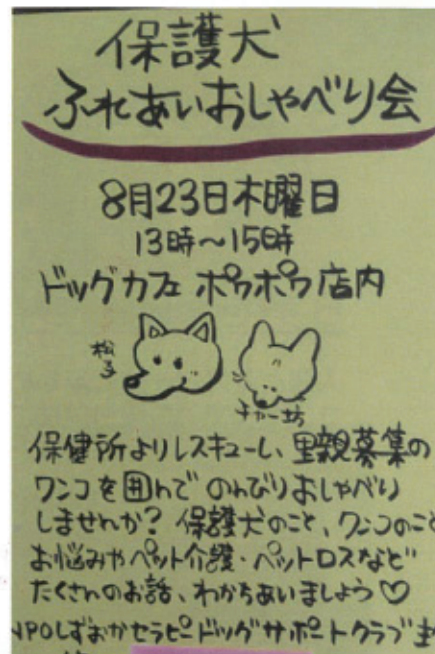 保護犬
ふれあいおしゃべり会
8月23日木曜日
13時～15時
ドッグカフェ ポウポウ店内
松子
チャー坊
保健所よりレスキューし、里親募集の
ワンコを囲んで のんびりおしゃべり
しませんか? 保護犬のこと、ワンコのこと
お悩みやペット介護・ペットロスなど
たくさんのお話、わかちあいましょう♡
NPOしずおかセラピードッグサポートクラブ主